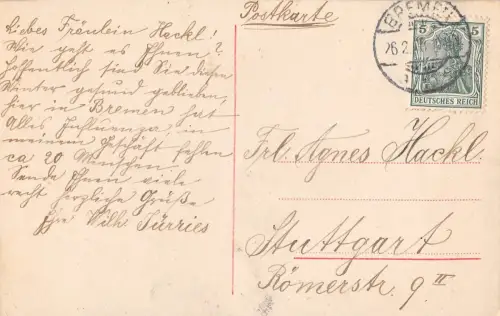 Postkarte
Liebes Fräulein Hackl!
Wie geht es Ihnen?
Hoffentlich sind Sie diesen
Winter gesund geblieben,
hier in Bremen hat
Alles Influenza, in
meinem Geschäft fehlen
ca 20 Menschen
Sende Ihnen viele
recht herzliche Grüße
Ihr Wilh.
BREMEN
26.2.
5 5
DEUTSCHES REICH
Frl. Agnes Hackl.
Stuttgart
Römerstr. 9 II